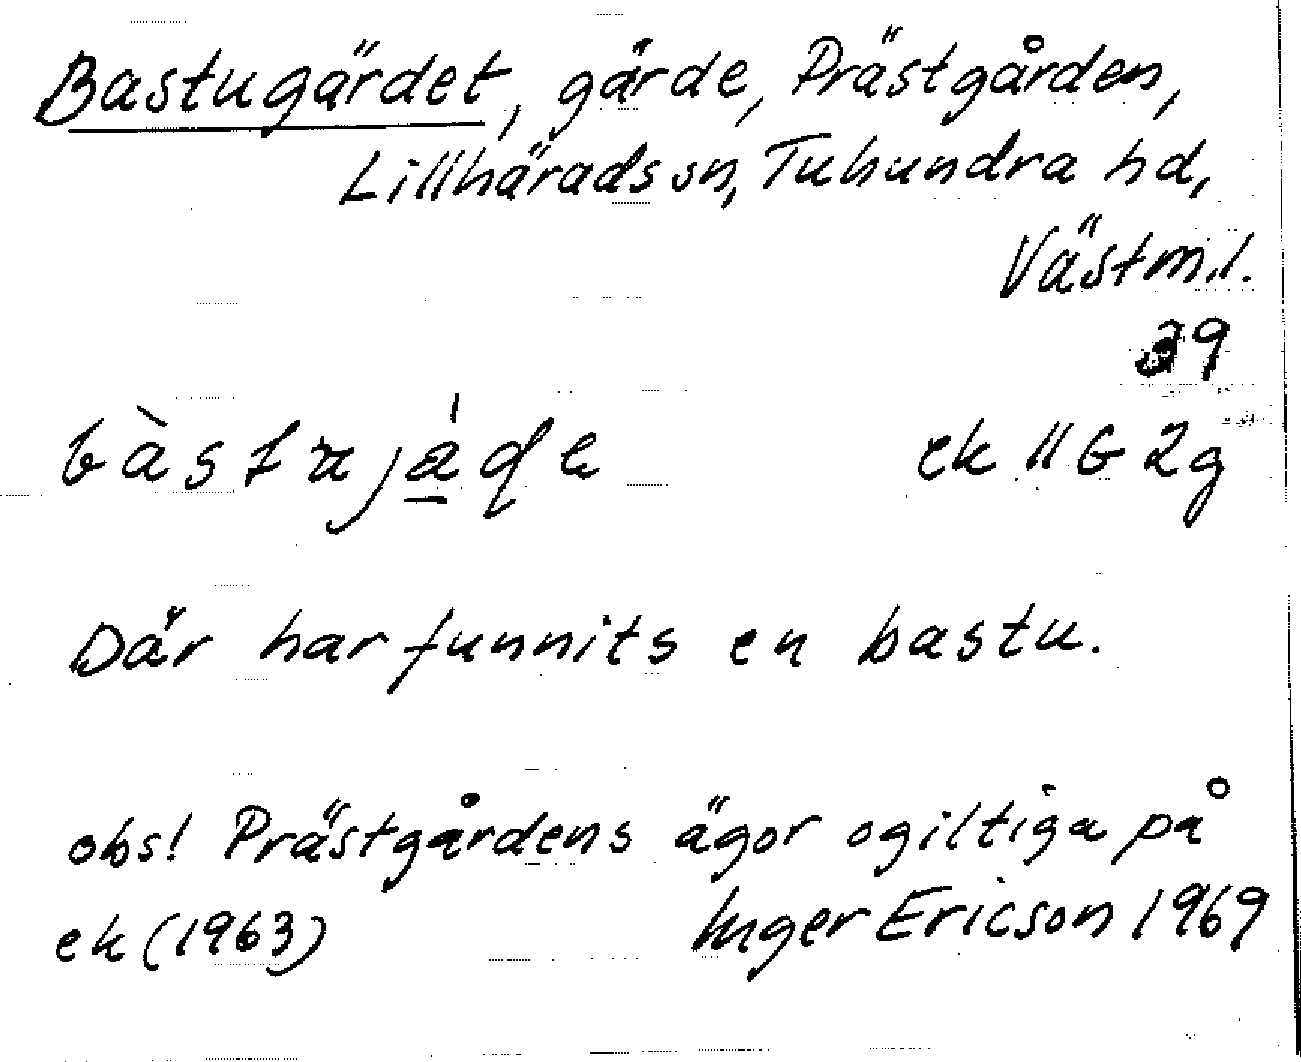 Bastugärdet, gärde, Prästgården,
Lillhärads sn, Tuhundra hd,
Västml.
39
ek 11 G 2g
Där har funnits en bastu.
obs! Prästgårdens ägor ogiltiga på
ek (1963) Inger Ericson 1969